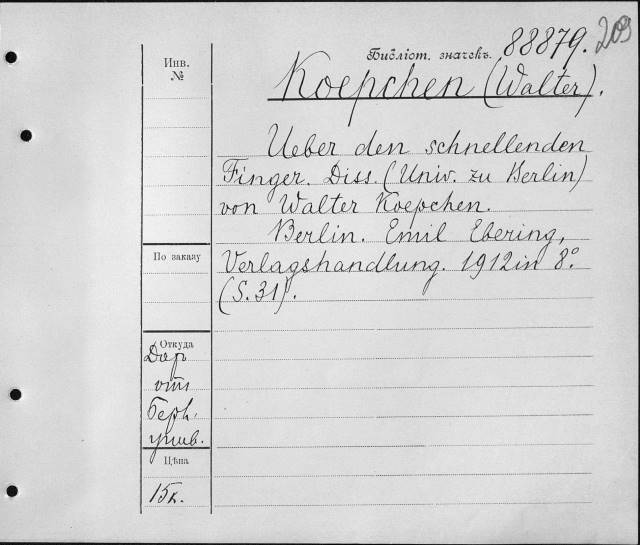 Библіот. значекъ. 88879. 203
Инв.
№
Koepchen (Walter).
Ueber den schnellenden
Finger. Diss. (Univ. zu Berlin)
von Walter Koepchen.
Berlin. Emil Ebering,
Verlagshandlung. 1912 in 8°.
(S. 31).
По заказу
Откуда
Дар
отъ
Берл.
унив.
Цѣна
15к.